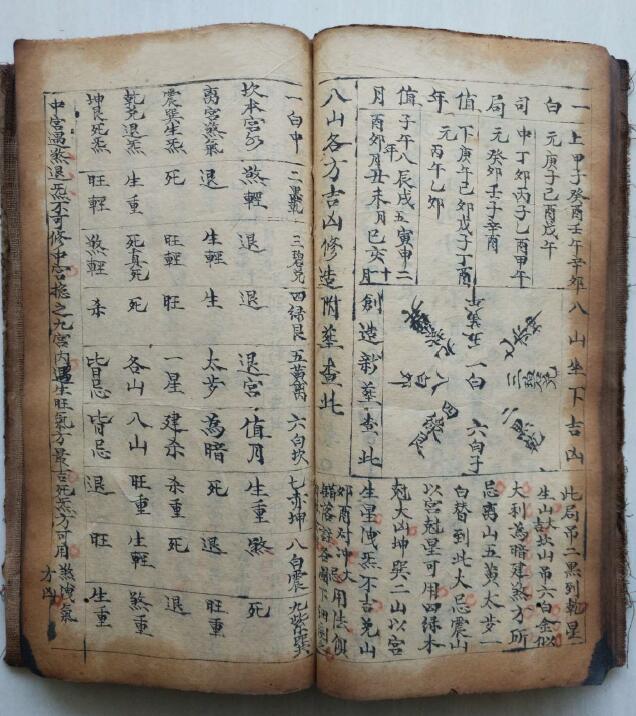 一白司局值年值月
上元甲子癸酉壬午辛卯庚子己酉戊午
中元丁卯丙子乙酉甲午癸卯壬子辛酉
下元庚午己卯戊子丁酉丙午乙卯
子午年八辰戌五寅申二
酉卯月丑未月巳亥十月
八山坐下吉凶
一白
二黑乾
三碧兌
四綠艮
五黃離
六白子
七赤坤
八白卯
創造新葬查此
此局吊二黑到乾星
生山大吉坎山吊六白金似
大利為暗建煞方所
忌离山五黃太歩一
白替到此大忌震山
以宮尅星可用四綠木
尅大凶坤巽二山以宮
生星洩炁不吉兌山
卯酉对冲大忌用法俱
八山各方吉凶修造附葬查此
一白中 二黑乾 三碧兌 四綠艮 五黃离 六白坎 七赤坤 八白震 九紫巽
坎本宮方 煞輕 退 退 退宮 值月 生重 煞 死
离宮煞氣 退 生輕 生 太歩 為暗 死 退 旺重
震巽生炁 死 旺輕 旺 一星 建杀 杀重 死 退
乾兌退炁 生重 死 死 各山 八山 旺重 生輕 煞重
坤艮死炁 旺輕 煞輕 杀 皆忌 皆忌 退 旺 生重
中宮遇煞退炁不可修中宮捴之九宮內遇生旺氣方最吉死炁方可用煞洩氣方凶